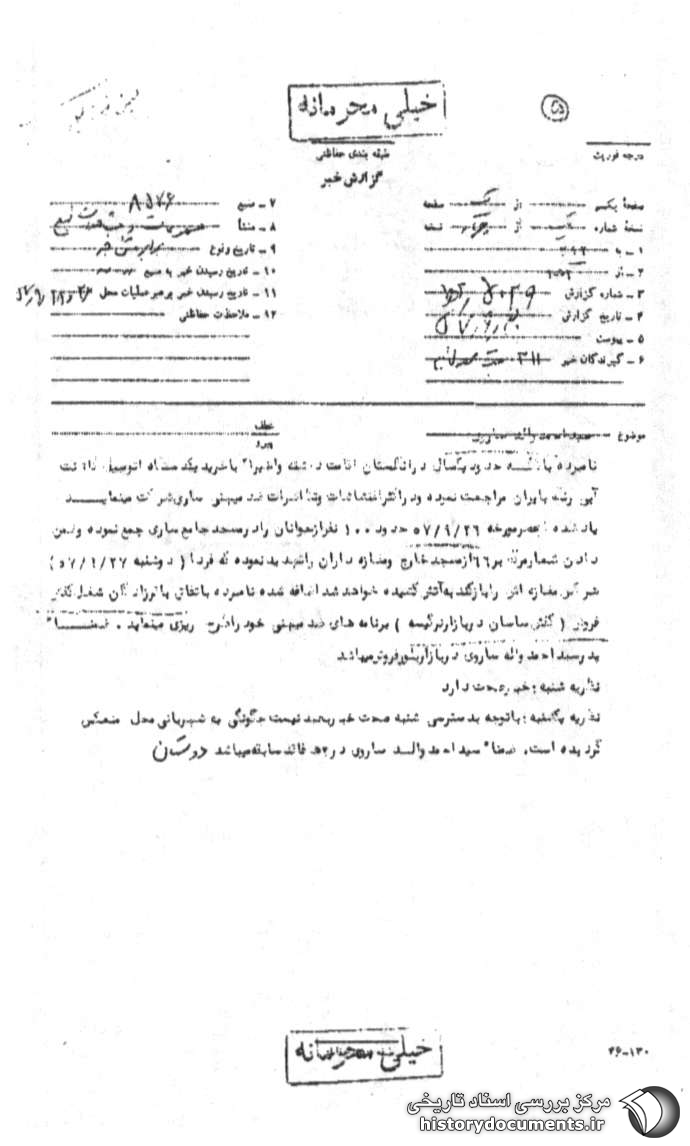 خیلی محرمانه
طبقه بندی حفاظتی
گزارش خبر
درجه فوریت
صفحهٔ یک از یک صفحه
نسخهٔ شماره از نسخه
۱ - به ۳۱۲
۲ - از
۳ - شماره گزارش
۴ - تاریخ گزارش
۵ - پیوست
۶ - گیرندگان خبر ۳۱۱
۷ - منبع ۸۵۷۶
۸ - منشأ
۹ - تاریخ وقوع برابر متن خبر
۱۰ - تاریخ رسیدن خبر به منبع
۱۱ - تاریخ رسیدن خبر برهبر عملیات محل
۱۲ - ملاحظات حفاظتی
موضوع سید احمد واله ساروی
عطف
پیرو
نامبرده بالا که حدود یکسال در انگلستان اقامت داشته و اخیرا" با خرید یکدستگاه اتومبیل داتسن
آبی رنگ بایران مراجعت نموده و در اکثر اغتشاشات و تظاهرات ضد میهنی ساری شرکت مینماید
یاد شده عصر مورخه ۵۷/۹/۲۶ حدود ۱۰۰ نفر از جوانان را در مسجد جامع ساری جمع نموده و ضمن
دادن شعار مرگ بر ۶۶ از مسجد خارج و مغازه داران را تهدید نموده که فردا ( دوشنبه ۵۷/۹/۲۷ )
هر کس مغازه اش را باز کند به آتش کشیده خواهد شد اضافه شده نامبرده با تفاق برادرزادگان شغل کفش
فروش ( کفش ساسان در بازار نرگسیه ) برنامه های ضد میهنی خود را طرح ریزی مینماید . ضمنا"
پدر سید احمد واله ساروی در بازار بلور فروش میباشد
نظریه شنبه : خبر صحت دارد
نظریه یکشنبه : با توجه بدسترسی شنبه صحت خبر بعید نیست چگونگی به شهربانی محل منعکس
گردیده است. ضمنا" سید احمد والـه ساروی در ۲هـ فاقد سابقه میباشد دوستان
خیلی محرمانه
۴۶-۱۳۰
مرکز بررسی اسناد تاریخی
historydocuments.ir